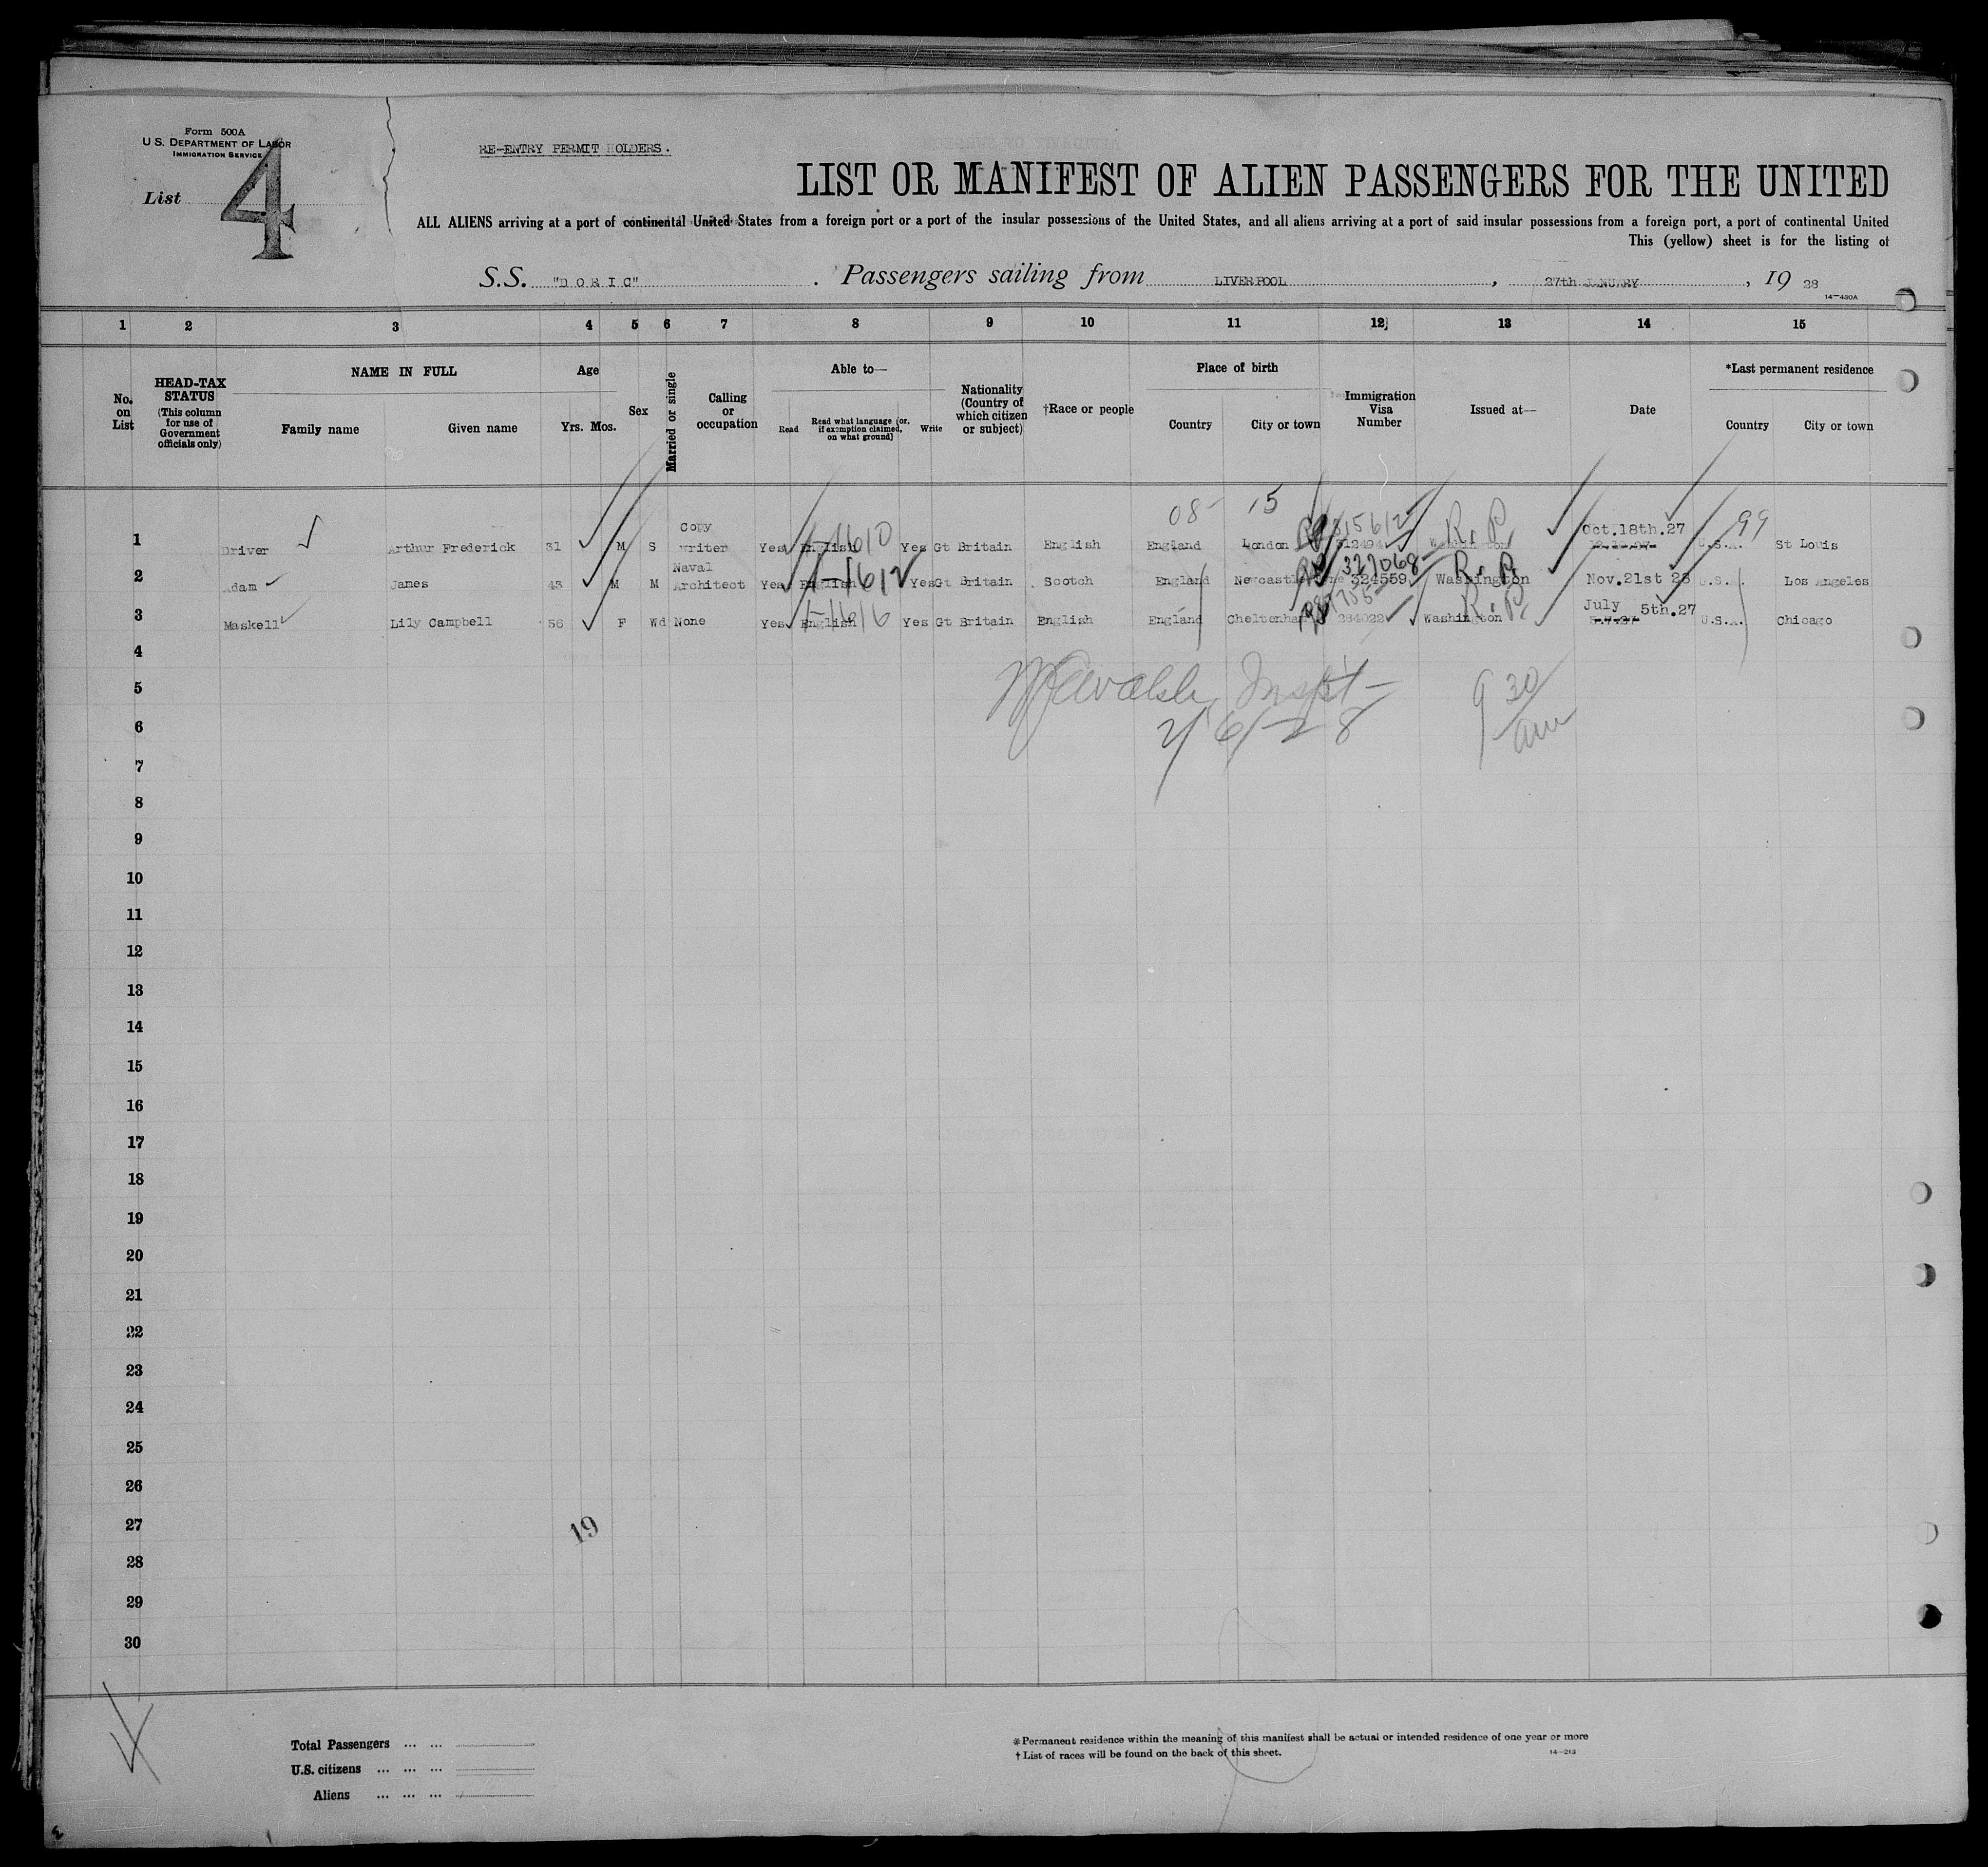 Form 500A
U. S. DEPARTMENT OF LABOR
IMMIGRATION SERVICE
List 4
RE-ENTRY PERMIT HOLDERS.
LIST OR MANIFEST OF ALIEN PASSENGERS FOR THE UNITED
ALL ALIENS arriving at a port of continental United States from a foreign port or a port of the insular possessions of the United States, and all aliens arriving at a port of said insular possessions from a foreign port, a port of continental United
This (yellow) sheet is for the listing of
S.S. "DORIC" . Passengers sailing from LIVERPOOL , 27th JANUARY , 19 28
14—430A
1 2 3 4 5 6 7 8 9 10 11 12 13 14 15
No. on List
HEAD-TAX STATUS (This column for use of Government officials only)
NAME IN FULL
Family name Given name
Age
Yrs. Mos.
Sex
Married or single
Calling or occupation
Able to—
Read Read what language (or, if exemption claimed, on what ground) Write
Nationality (Country of which citizen or subject)
†Race or people
Place of birth
Country City or town
Immigration Visa Number
Issued at—
Date
*Last permanent residence
Country City or town
08- 15 99
1 Driver Arthur Frederick 31 M S Copy writer Yes English 1610 Yes Gt Britain English England London 312494 Washington R.P. Oct.18th.27 U.S.A. St Louis
2 Adam James 43 M M Naval Architect Yes English 1612 Yes Gt Britain Scotch England Newcastle 327068 324559 Washington R.P. Nov.21st U.S.A. Los Angeles
3 Maskell Lily Campbell 56 F Wd None Yes English 1616 Yes Gt Britain English England Cheltenham 284022 Washington R.P. July 5th.27 5.7.27 U.S.A. Chicago
4
5 Walsh, Inspt- 9 30/am
6 2/6/28
7
8
9
10
11
12
13
14
15
16
17
18
19
20
21
22
23
24
25
26
27
19
28
29
30
Total Passengers ... ...
U.S. citizens ... ... ...
Aliens ... ... ...
* Permanent residence within the meaning of this manifest shall be actual or intended residence of one year or more
† List of races will be found on the back of this sheet.
14—213